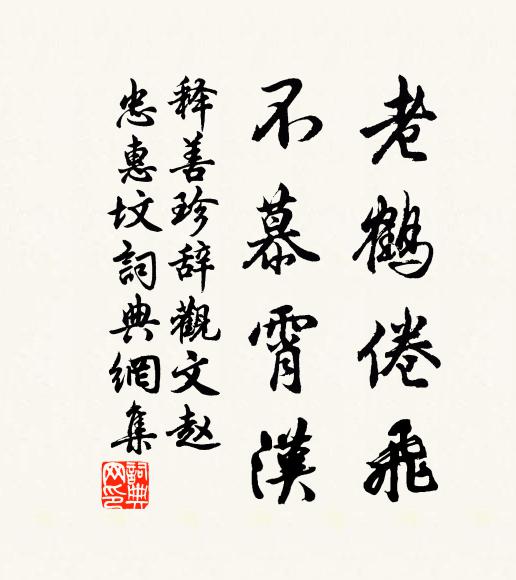 老鶴倦飛
不慕霄漢
释善珍辞觀文赵
忠惠坟詞典網集
詞典网印